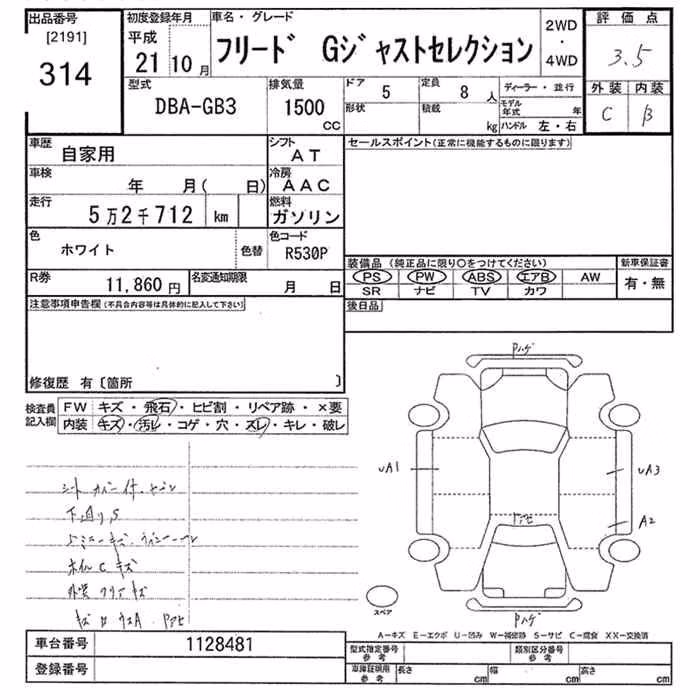 出品番号 初度登録年月 車名・グレード 2WD・4WD 評価点
[2191]
314 平成 21 10月 フリード Gジャストセレクション 3.5
型式 排気量 ドア 5 定員 8人 ディーラー・並行 外装 内装
DBA-GB3 1500 CC 形状 積載 kg モデル年式 年 C B
ハンドル 左・右
車歴 自家用 シフト AT セールスポイント(正常に機能するものに限ります)
車検 年 月( 日) 冷房 AAC
走行 5万2千712 km 燃料 ガソリン
色 ホワイト 色替 色コード R530P 装備品 (純正品に限り○をつけてください) 新車保証書
R券 11,860円 名変通知期限 月 日 PS PW ABS エアB AW 有・無
SR ナビ TV カワ
注意事項申告欄(不具合内容等は具体的に記入して下さい) 後日品
修復歴 有〔箇所 〕
検査員記入欄 FW キズ・飛石・ヒビ割・リペア跡・×要
内装 キズ・汚レ・コゲ・穴・スレ・キレ・破レ
Pハゲ
UA1
UA3
A2
ドアヒ
Pハゲ
シートカバー付
下廻りS
ホイルCキズ
外装クリアキズ
スペア
A−キズ E−エクボ U−凹み W−補修跡 S−サビ C−腐食 XX−交換済
車台番号 1128481 型式指定番号 参考 類別区分番号 参考
登録番号 車庫証明用 参考 長さ cm 幅 cm 高さ cm